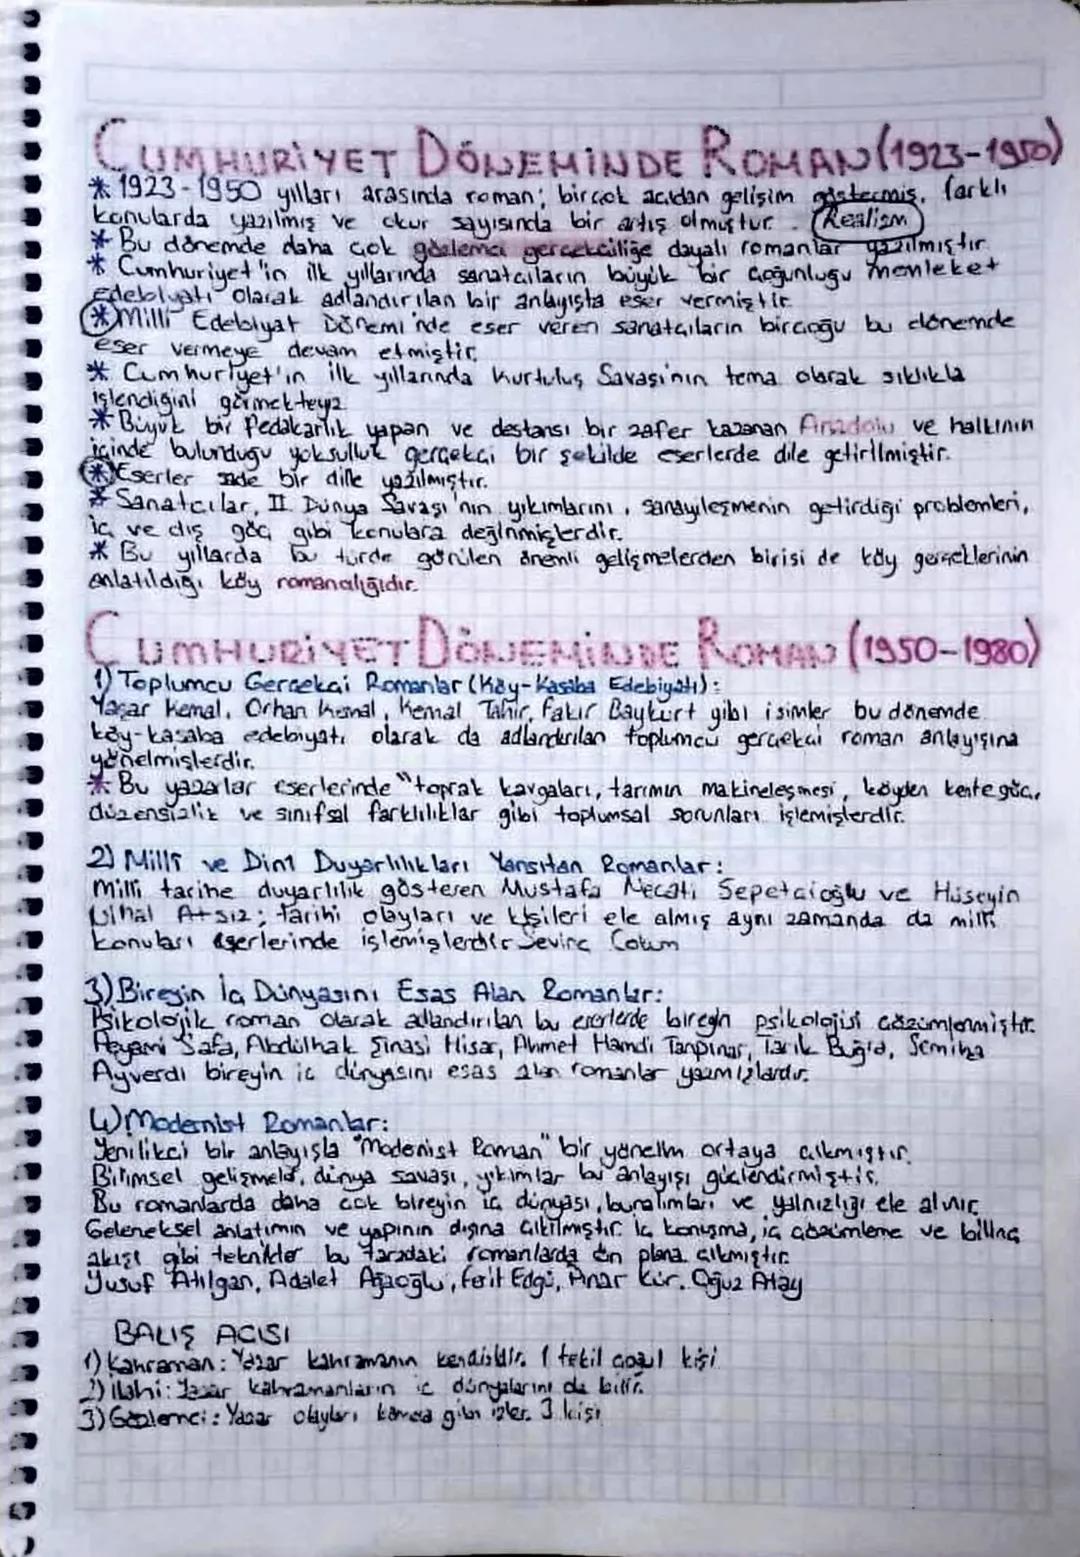 CUMHURİYET DÖNEMİNDE ROMAN (1923-1950)
* 1923-1950 yılları arasında roman; birçok açıdan gelişim göstermiş, farklı
konularda yazılmış ve okur sayısında bir artış olmuştur. (Realizm)
* Bu dönemde daha çok gözlemci gerçekçiliğe dayalı romanlar yazılmıştır.
* Cumhuriyet'in ilk yıllarında sanatçıların büyük bir çoğunluğu memleket
edebiyatı olarak adlandırılan bir anlayışta eser vermiştir.
* Milli Edebiyat Dönemi'nde eser veren sanatçıların birçoğu bu dönemde
eser vermeye devam etmiştir.
* Cumhuriyet'in ilk yıllarında Kurtuluş Savaşı'nın tema olarak sıklıkla
işlendiğini görmekteyiz
* Büyük bir fedakarlık yapan ve destansı bir zafer kazanan Anadolu ve halkının
içinde bulunduğu yoksulluk gerçekçi bir şekilde eserlerde dile getirilmiştir.
* Eserler sade bir dille yazılmıştır.
* Sanatçılar, II. Dünya Savaşı'nın yıkımlarını, sanayileşmenin getirdiği problemleri,
iç ve dış göç gibi konulara değinmişlerdir.
* Bu yıllarda bu türde görülen önemli gelişmelerden birisi de köy gerçeklerinin
anlatıldığı köy romancılığıdır.
CUMHURİYET DÖNEMİNDE ROMAN (1950-1980)
1) Toplumcu Gerçekçi Romanlar (Köy-Kasaba Edebiyatı):
Yaşar Kemal, Orhan Kemal, Kemal Tahir, Fakir Baykurt gibi isimler bu dönemde
köy-kasaba edebiyatı olarak da adlandırılan toplumcu gerçekçi roman anlayışına
yönelmişlerdir.
* Bu yazarlar eserlerinde "toprak kavgaları, tarımın makineleşmesi, köyden kente göç,
düzensizlik ve sınıfsal farklılıklar gibi toplumsal sorunları işlemişlerdir.
2) Milli ve Dini Duyarlılıkları Yansıtan Romanlar:
Milli tarihe duyarlılık gösteren Mustafa Necati Sepetçioğlu ve Hüseyin
Nihal Atsız; tarihi olayları ve kişileri ele almış aynı zamanda da milli
konuları eserlerinde işlemişlerdir Sevinç Çokum
3) Bireyin İç Dünyasını Esas Alan Romanlar:
Psikolojik roman olarak adlandırılan bu eserlerde bireyin psikolojisi çözümlenmiştir.
Peyami Safa, Abdülhak Şinasi Hisar, Ahmet Hamdi Tanpınar, Tarık Buğra, Semiha
Ayverdi bireyin iç dünyasını esas alan romanlar yazmışlardır.
4) Modernist Romanlar:
Yenilikçi bir anlayışla "Modernist Roman" bir yönelim ortaya çıkmıştır.
Bilimsel gelişmeler, dünya savaşı, yıkımlar bu anlayışı güçlendirmiştir.
Bu romanlarda daha çok bireyin iç dünyası, bunalımları ve yalnızlığı ele alınır
Geleneksel anlatımın ve yapının dışına çıkılmıştır. İç konuşma, iç çözümleme ve bilinç
akışı gibi teknikler bu tarzdaki romanlarda ön plana çıkmıştır.
Yusuf Atılgan, Adalet Ağaoğlu, Ferit Edgü, Pınar Kür, Oğuz Atay
BAKIŞ AÇISI
1) Kahraman: Yazar kahramanın kendisidir. 1 tekil çoğul kişi
2) İlahi: Yazar kahramanların iç dünyalarını da bilir.
3) Gözlemci: Yazar olayları kamera gibi izler. 3 kişi